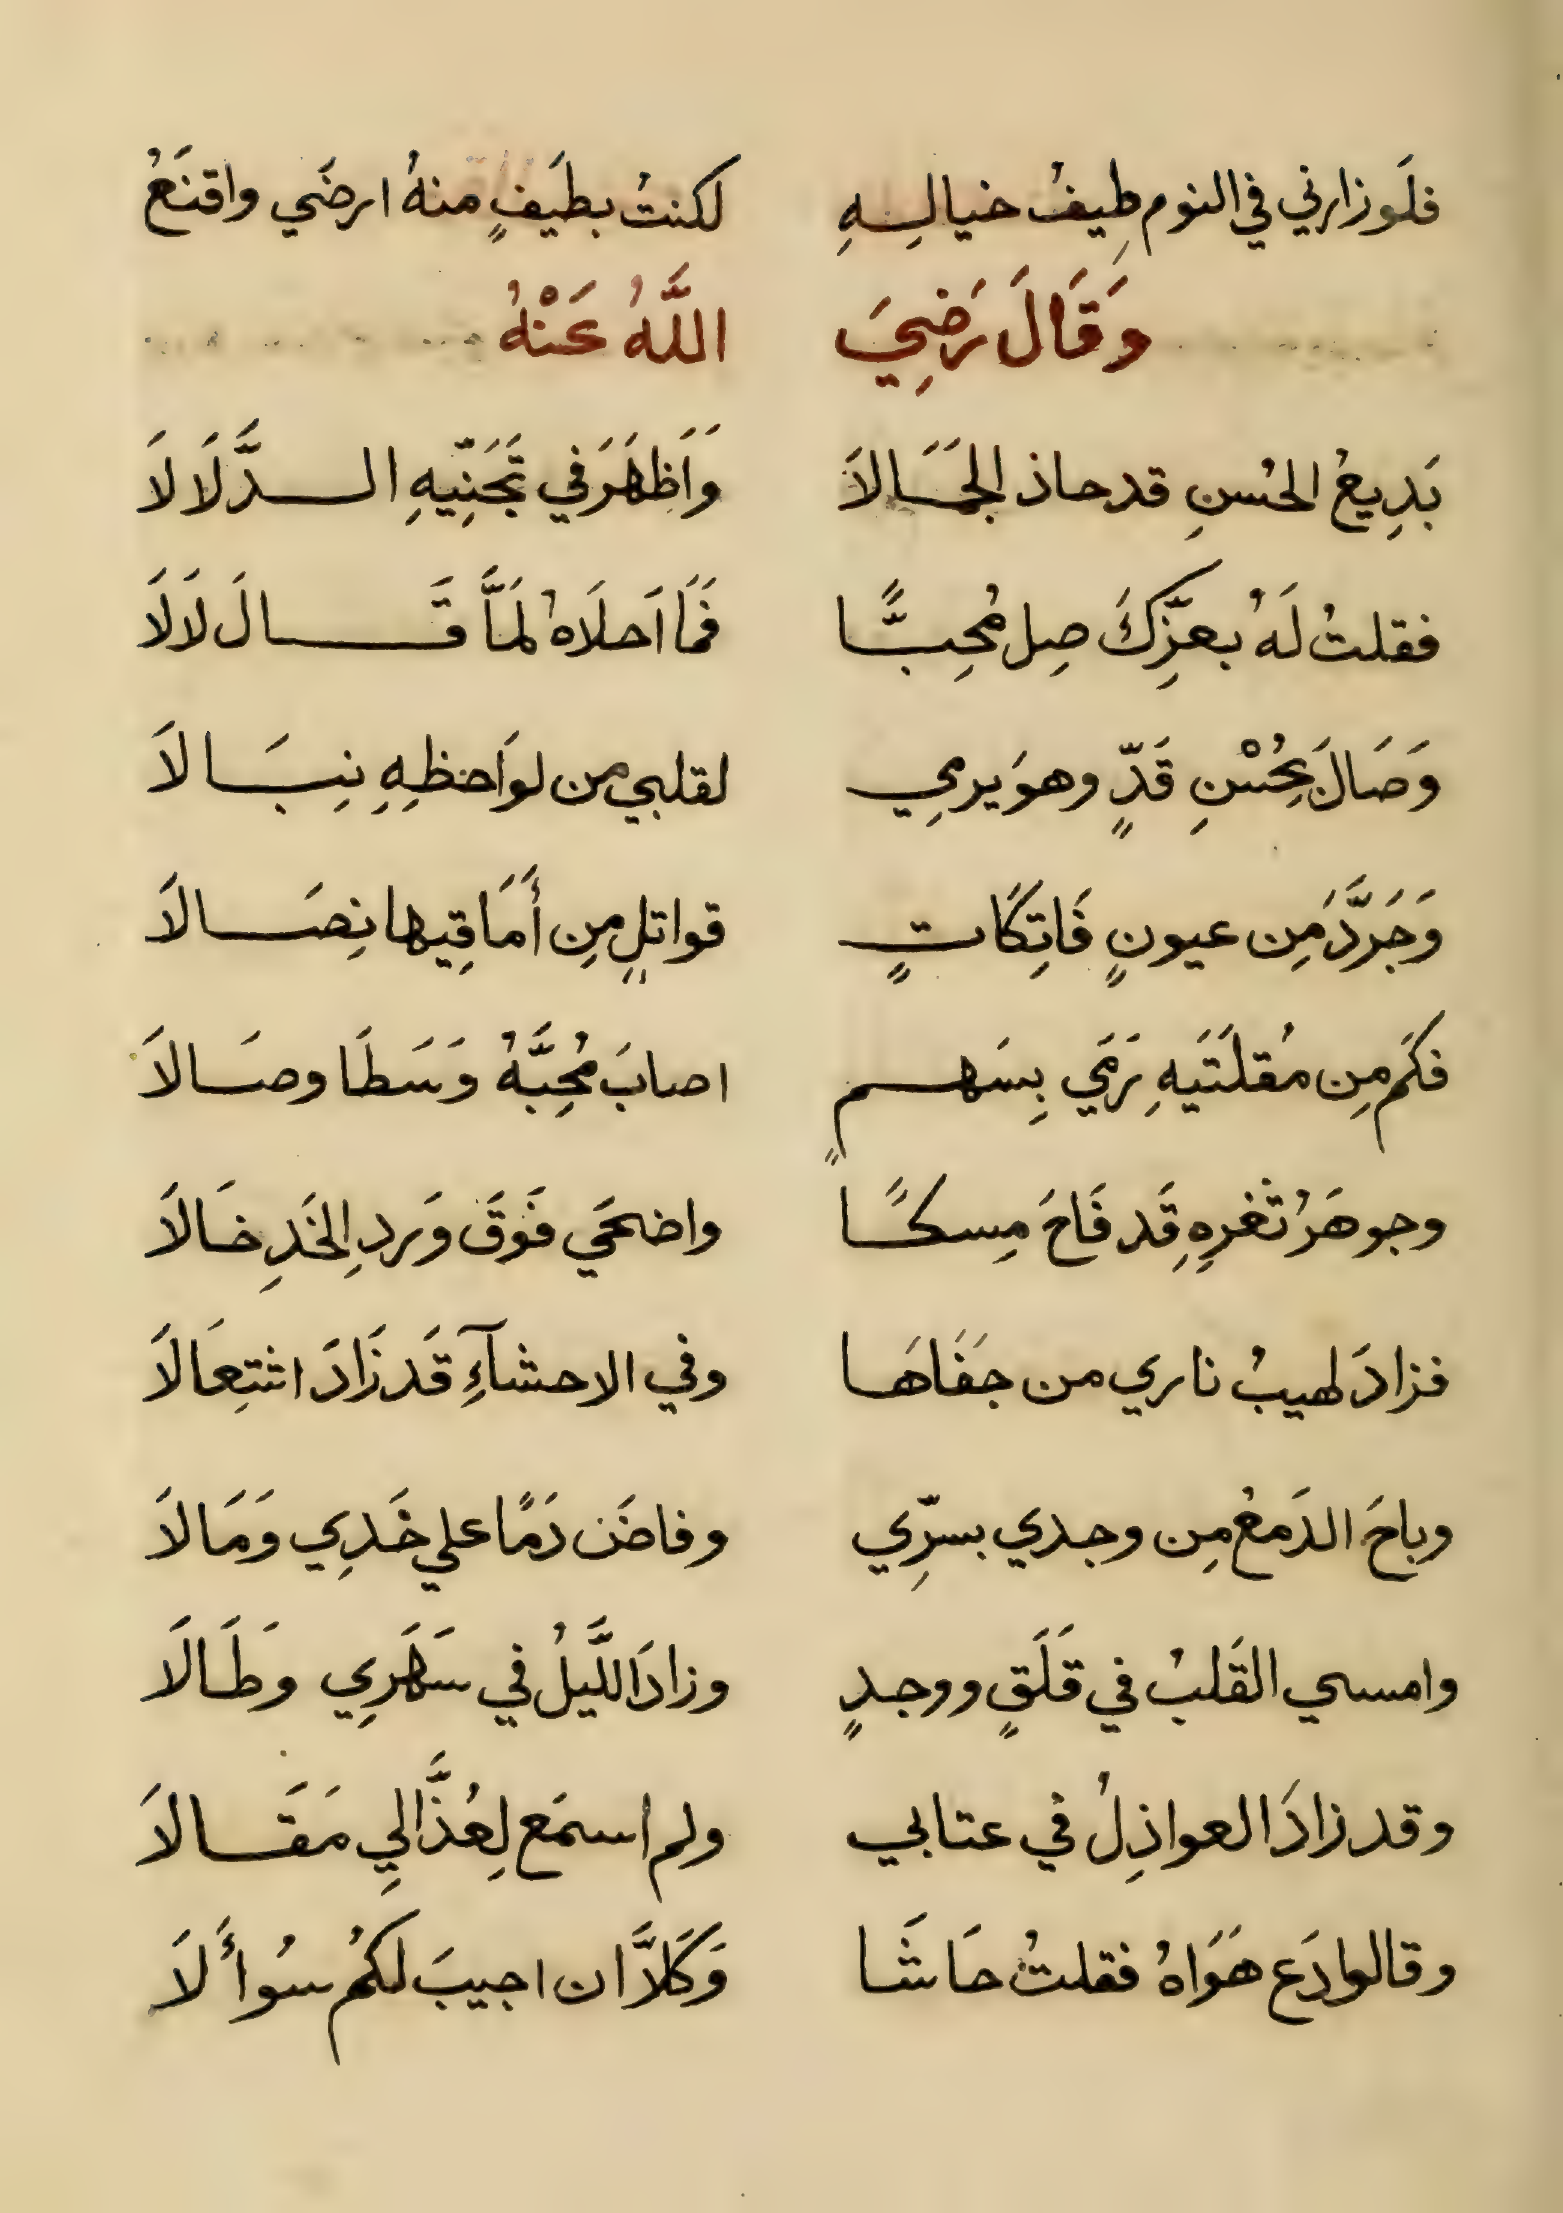 فلَو زارني في النوم طِيفُ خيالِهِ لكنتُ بطَيفٍ منهُ ارضَي واقنَعُ
وَقَالَ رَضِيَ اللَّهُ عَنْهُ
بَدِيعُ الحُسنِ قد حاذ الجَمَالاَ وَاَظهَرَ في تَجَنِّيهِ الدَّلَالاَ
فقلتُ لَهُ بعزِّكَ صِل مُحِبًّا فَمَا اَحلَاهُ لمَّا قَالَ لاَلاَ
وَصَالَ بحُسْنِ قَدٍّ وهوَ يرمِي لقلبي من لوَاحظِهِ نِبَالاَ
وَجَرَّدَ مِن عيونٍ فَاتِكَاتٍ قواتلٍ مِن أَمَاقِيها نِصَالاَ
فكَم مِن مُقلَتَيهِ رَمَي بِسَهمٍ اصابَ مُحِبَّهُ وَسَطَا وصَالاَ
وجوهَرُ ثَغرِهِ قَد فَاحَ مِسكًا واضحَي فَوقَ وَردِ الخَدِ خَالاَ
فزادَ لهيبُ ناري من جَفَاهَا وفي الاحشآءِ قَد زَادَ اشتِعَالاَ
وباحَ الدَمعُ مِن وجدي بسرِّي وفاضَ دَمًا علي خَدِي وَمَالاَ
وامسي القَلبُ في قَلَقٍ ووجدٍ وزادَ اللَّيلُ في سَهَرِي وَطَالَا
وقد زادَ العواذِلُ في عتابي ولم اسمَع لِعُذَّالِي مَقَالاَ
وقالوا دَع هَوَاهُ فقلتُ حَاشَا وَكَلاَّ ان اجيبَ لكُم سُوأَلاَ